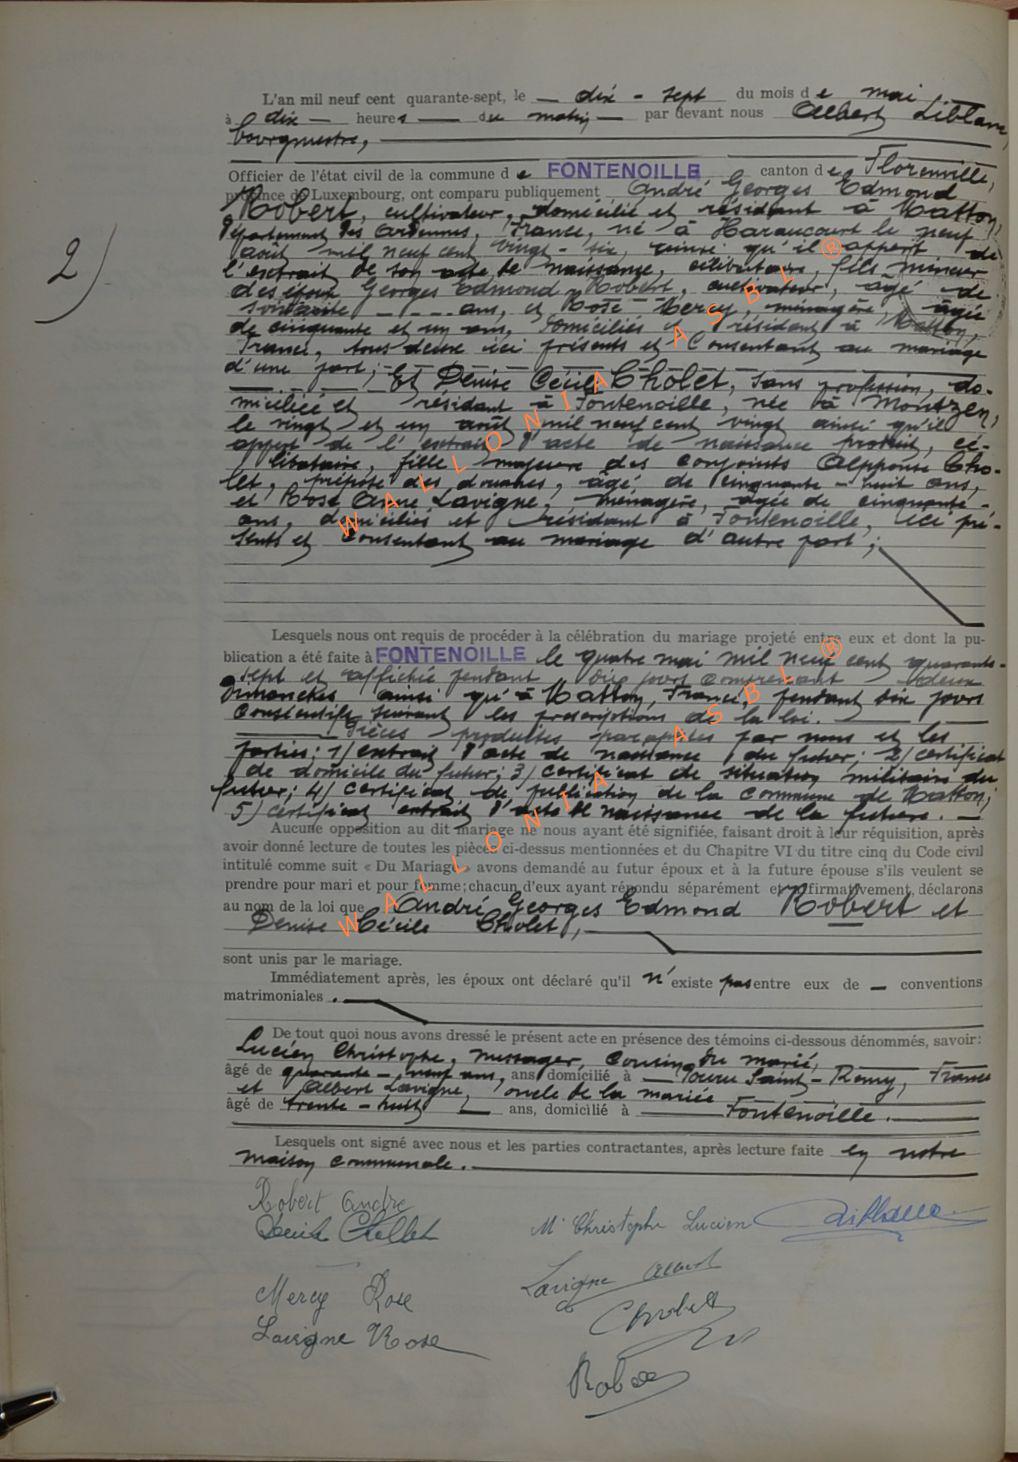 L'an mil neuf cent quarante-sept, le — dix - sept du mois de mai
à dix — heures — du matin — par devant nous Albert Liblanc,
bourgmestre,
Officier de l'état civil de la commune de FONTENOILLE canton de Florenville,
province de Luxembourg, ont comparu publiquement André Georges Edmond
Robert, cultivateur, domicilié et résidant à Matton,
Département des Ardennes, France, né à Haraucourt le neuf
août mil neuf cent vingt - six, ainsi qu'il appert de
l'extrait de son acte de naissance, célibataire, fils mineur
des époux Georges Edmond Robert, cultivateur, âgé de
soixante — ans, et Rose Mercy, ménagère, âgée
de cinquante et un ans, domiciliés et résidant à Matton,
France, tous deux ici présents et consentant au mariage
d'une part; Et Denise Cécile Cholet, sans profession, do-
miciliée et résidant à Fontenoille, née à Montzen,
le vingt et un août mil neuf cent vingt ainsi qu'il
appert de l'extrait d'acte de naissance produit, cé-
libataire, fille majeure des conjoints Alphonse Cho-
let, préposé des douanes, âgé de cinquante - huit ans,
et Rose Anne Lavigne, ménagère, âgée de cinquante -
ans, domiciliés et résidant à Fontenoille, ici pré-
sents et consentant au mariage d'autre part;
Lesquels nous ont requis de procéder à la célébration du mariage projeté entre eux et dont la pu-
blication a été faite à FONTENOILLE le quatre mai mil neuf cent quarante-
sept et affichée pendant dix jours comprenant deux
dimanches ainsi qu'à Matton, France, pendant dix jours
consécutifs suivant les prescriptions de la loi.
Pièces produites paraphées par nous et les
parties; 1/ extrait d'acte de naissance du futur; 2/ certificat
de domicile du futur; 3/ certificat de situation militaire du
futur; 4/ certificat de publication de la commune de Matton;
5/ certificat extrait d'acte de naissance de la future. —
Aucune opposition au dit mariage ne nous ayant été signifiée, faisant droit à leur réquisition, après
avoir donné lecture de toutes les pièces ci-dessus mentionnées et du Chapitre VI du titre cinq du Code civil
intitulé comme suit « Du Mariage » avons demandé au futur époux et à la future épouse s'ils veulent se
prendre pour mari et pour femme; chacun d'eux ayant répondu séparément et affirmativement, déclarons
au nom de la loi que André Georges Edmond Robert et
Denise Cécile Cholet,
sont unis par le mariage.
Immédiatement après, les époux ont déclaré qu'il n'existe pas entre eux de — conventions
matrimoniales .
De tout quoi nous avons dressé le présent acte en présence des témoins ci-dessous dénommés, savoir:
Lucien Christophe, messager, cousin du marié,
âgé de quarante - neuf ans, ans domicilié à — Saint - Remy, France
et Albert Lavigne, oncle de la mariée
âgé de trente - huit — ans, domicilié à Fontenoille.
Lesquels ont signé avec nous et les parties contractantes, après lecture faite en notre
maison communale.
2)
Robert André
Denise Chollet
M Christophe Lucien
Mercy Rose
Lavigne Albert
Lavigne Rose
WALLONIA ASBL ®
WALLONIA ASBL ®